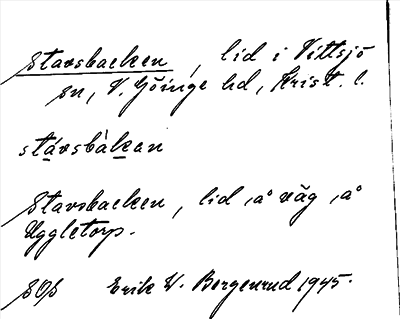 Stavsbacken, lid i Vittsjö
sn, V. Göinge hd, Krist. l.
stávsbàkan
Stavsbacken, lid å väg å
Uggletorp.
SOÞ Erik V. Bergenrud 1945.